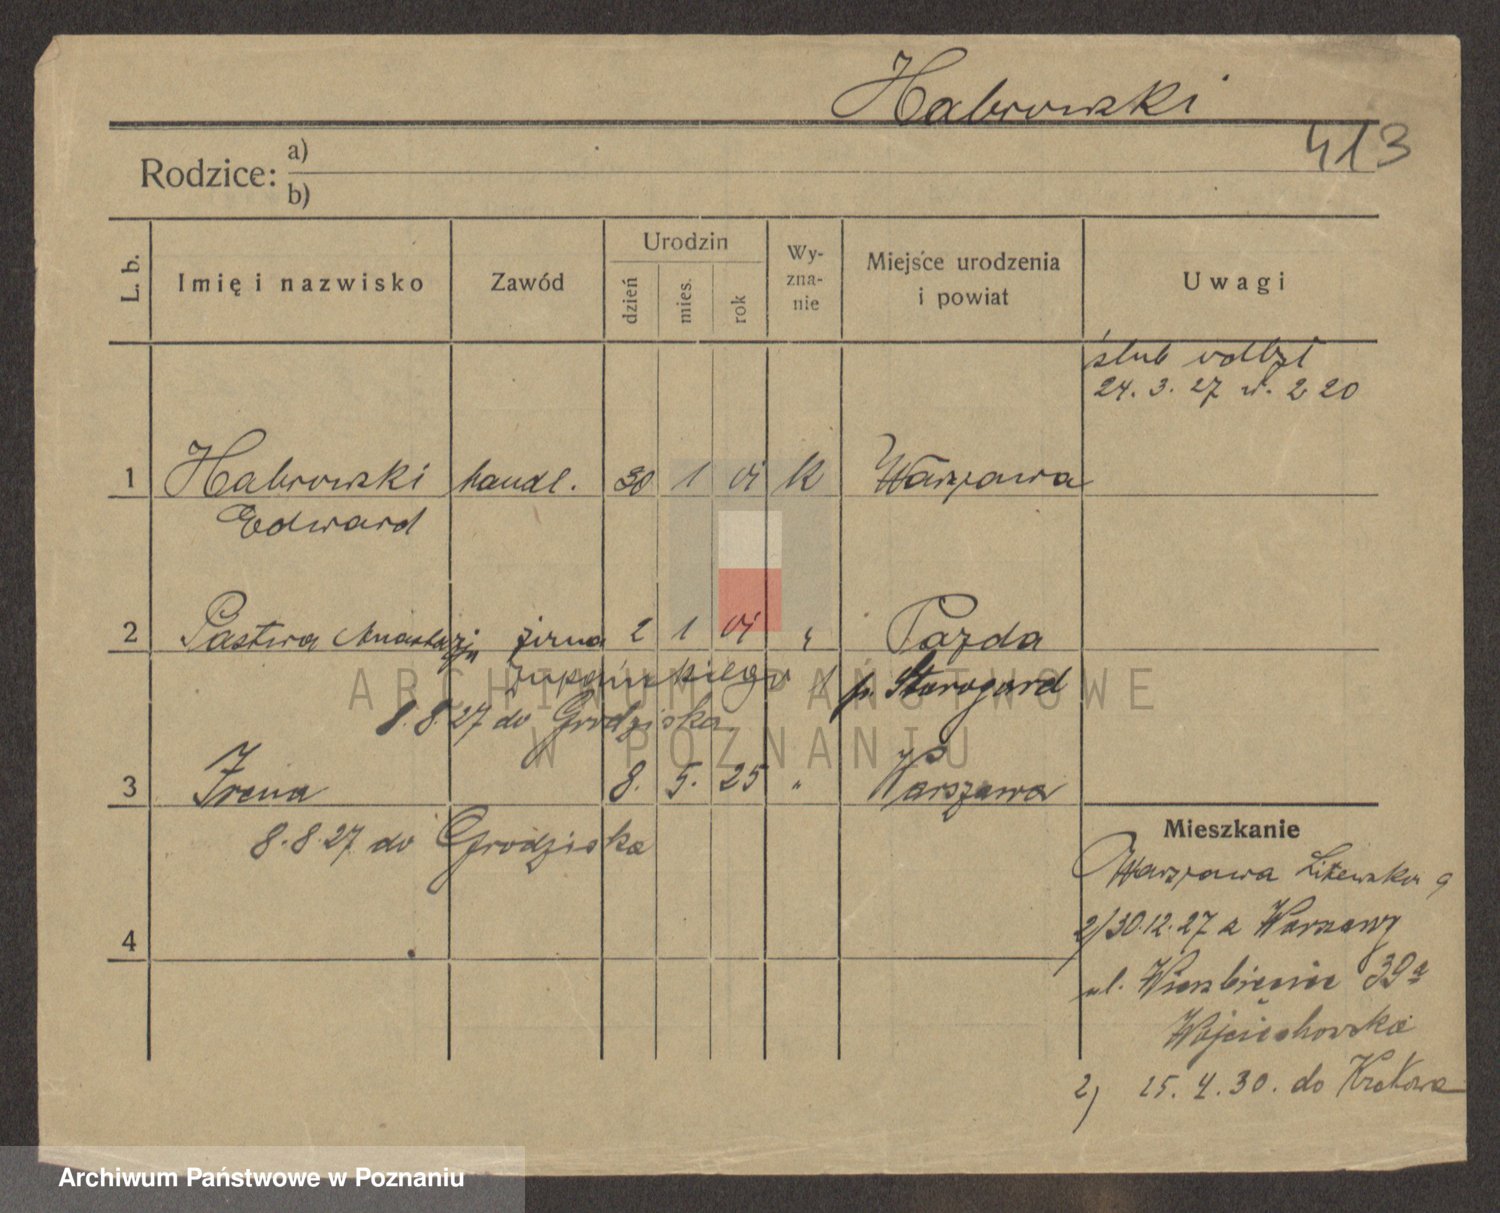 Habrowski
413
Rodzice: a)
b)
L. b.
Imię i nazwisko
Zawód
Urodzin
dzień
mies.
rok
Wy-
zna-
nie
Miejsce urodzenia
i powiat
Uwagi
ślub odbył
24. 3. 27 w. 2 20
1 Habrowski handl. 30 1 01 k Warszawa
Edward
2 Pastwa Anastazja żona 2 1 01 " Pazda
p. Starogard
8.8.27 do Grodziska
3 Irena 8. 5. 25 " Warszawa
8.8.27 do Grodziska
4
Mieszkanie
Warszawa Litewska 9
2/30.12.27 z Warszawy
ul. Wierzbięcice 39a
Wojciechowska
2) 15. 4. 30. do Krakowa
ARCHIWUM PAŃSTWOWE
W POZNANIU
Archiwum Państwowe w Poznaniu